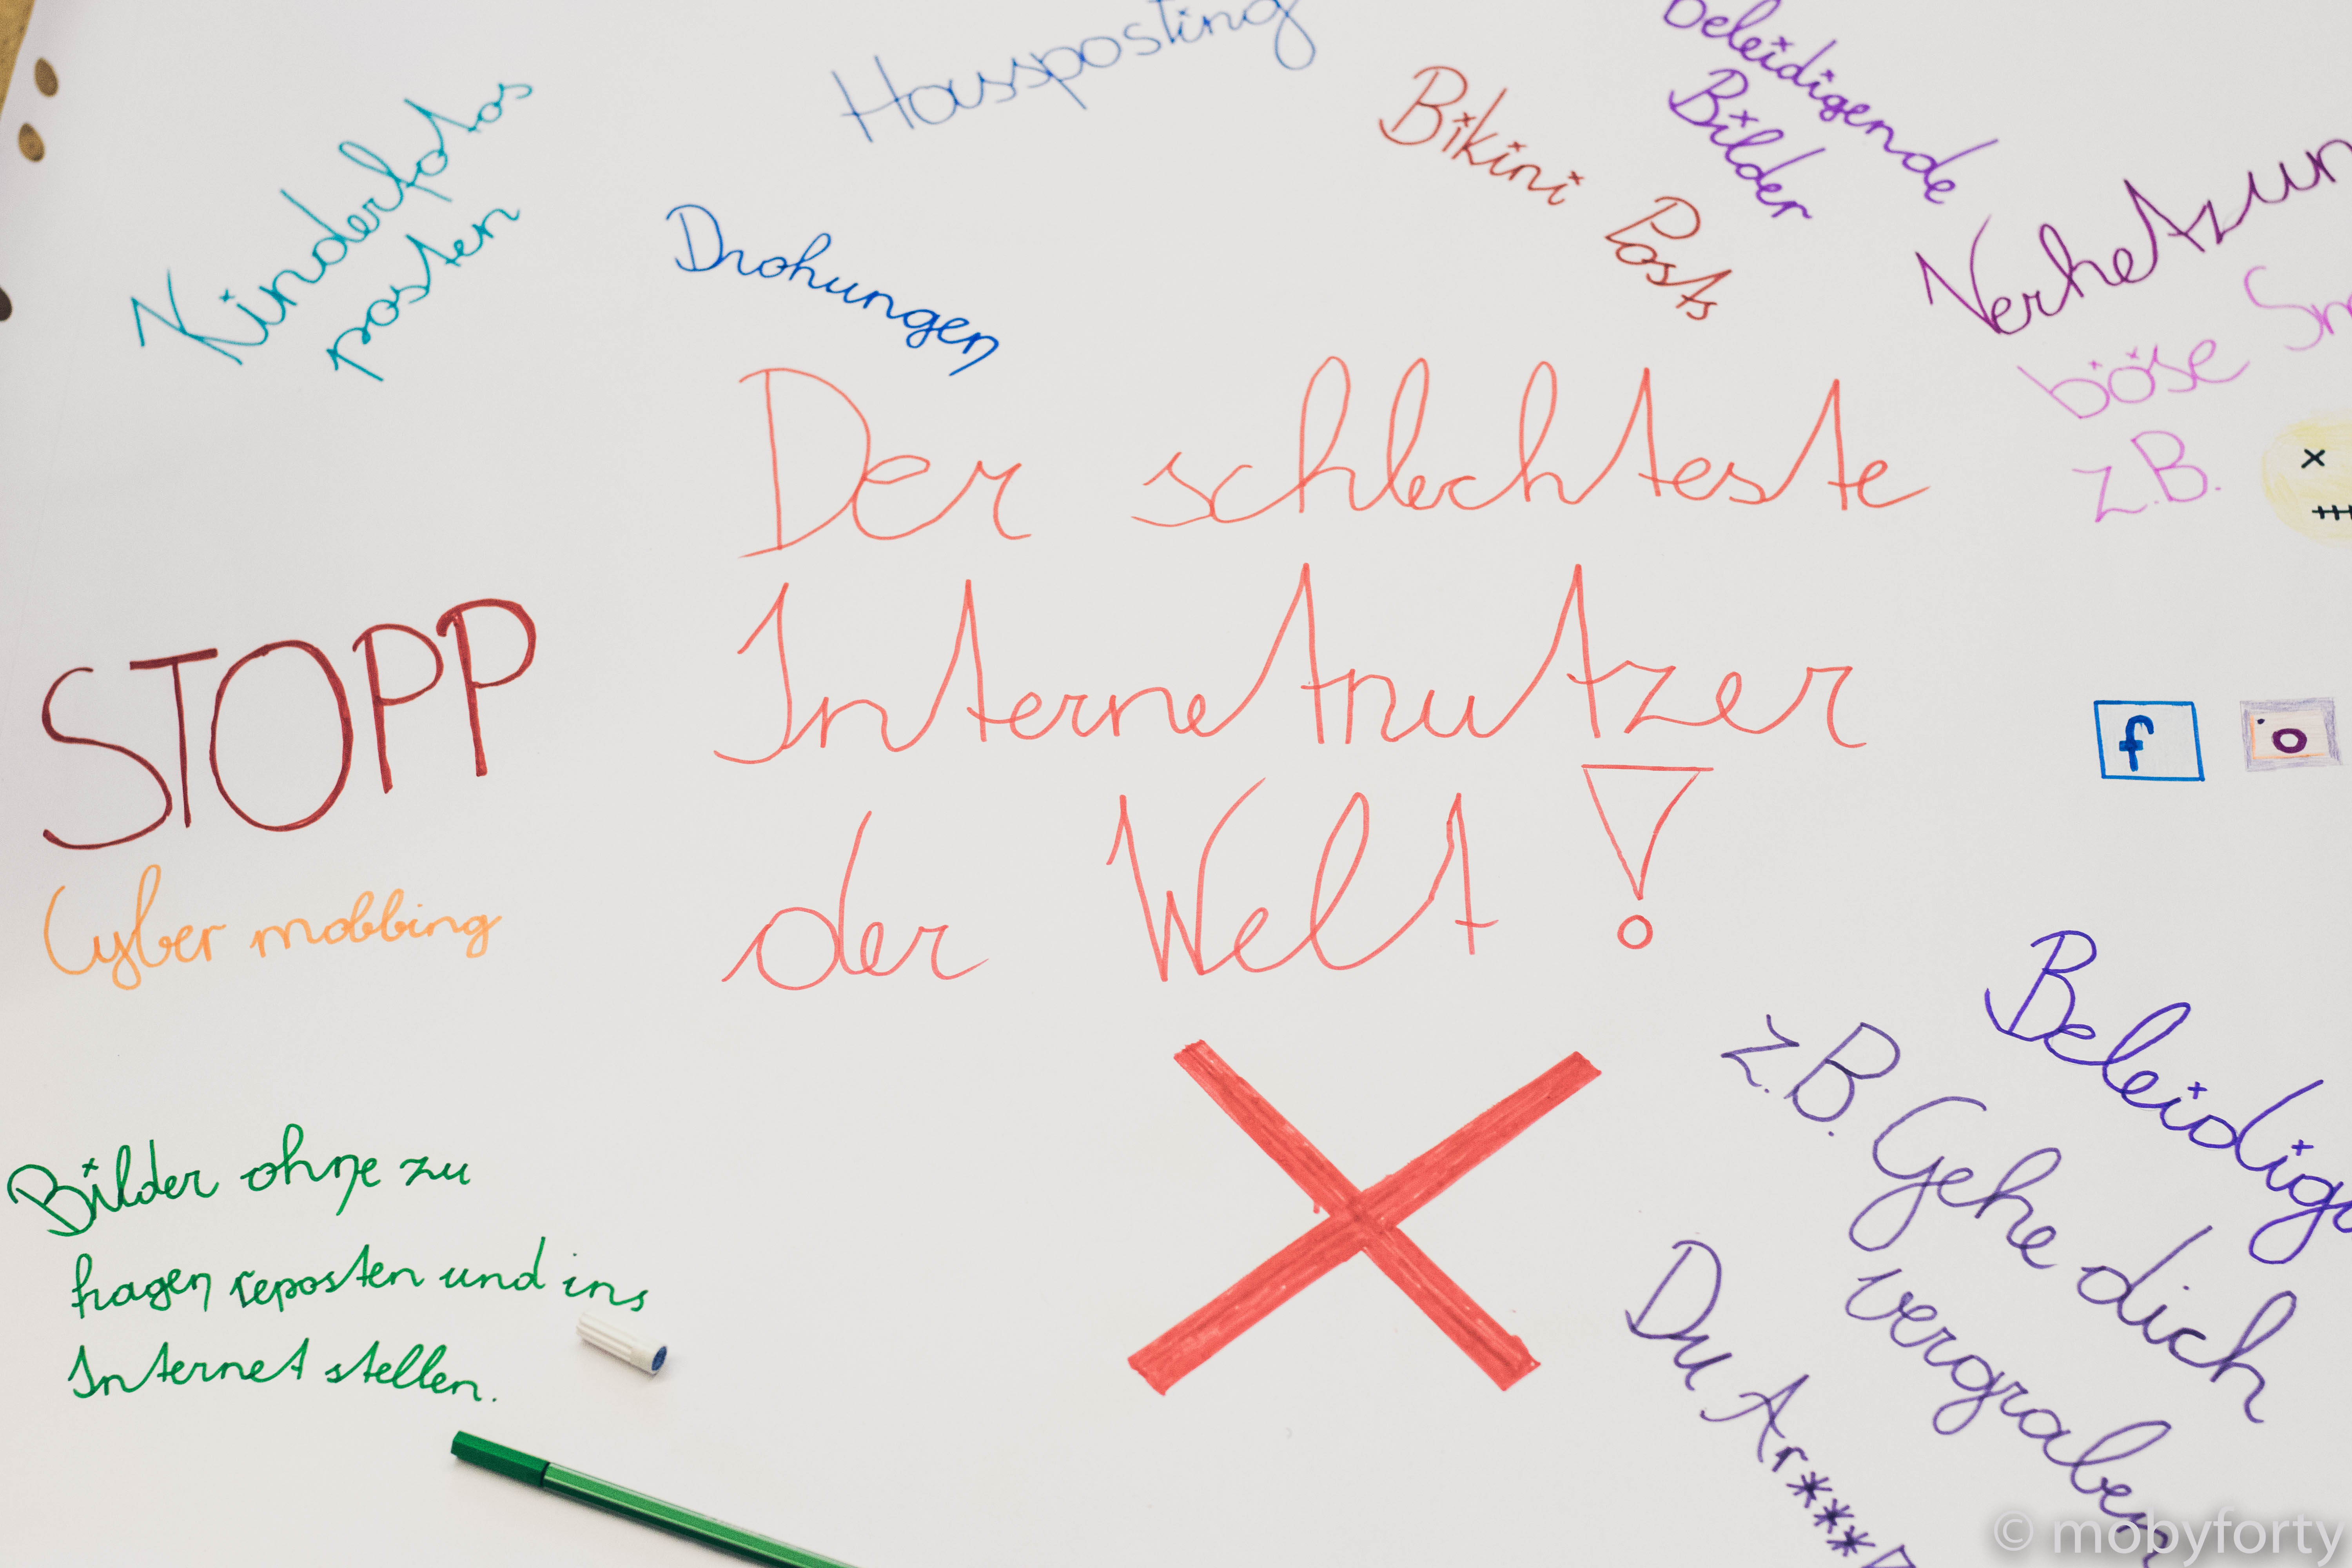 Kinderfotos
posten
Hassposting
Drohungen
Bikini Posts
beleidigende
Bilder
Verhetzun
böse Sm
z.B.
Der schlechteste
Internetnutzer
der Welt!
STOPP
Cyber mobbing
f
Bilder ohne zu
fragen reposten und ins
Internet stellen.
Beleidig
z.B. Gehe dich
vergraben
Du Ar***
© mobyforty